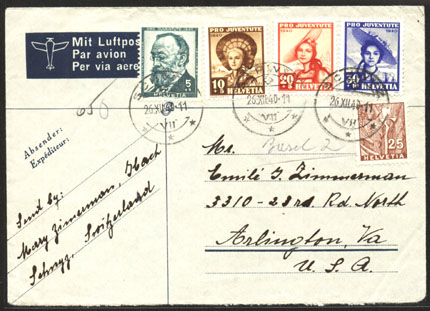 Mit Luftpost
Par avion
Per via aerea
PRO JUVENTUTE 1940
5
HELVETIA
PRO JUVENTUTE
1940
10 HELVETIA
PRO JUVENTUTE
1940
20
HELVETIA
PRO JUVENTUTE
1940
30
HELVETIA
26.XII.40-11
VII
26.XII.40-11
VII
26.XII.40-11
VII
25
HELVETIA
Absender:
Expéditeur:
Sent by:
Mary Zimmerman,
Switzerland
Mr.
Basel 2
Emile J. Zimmerman
3310-23rd. Rd. North
Arlington, Va
U.S.A.